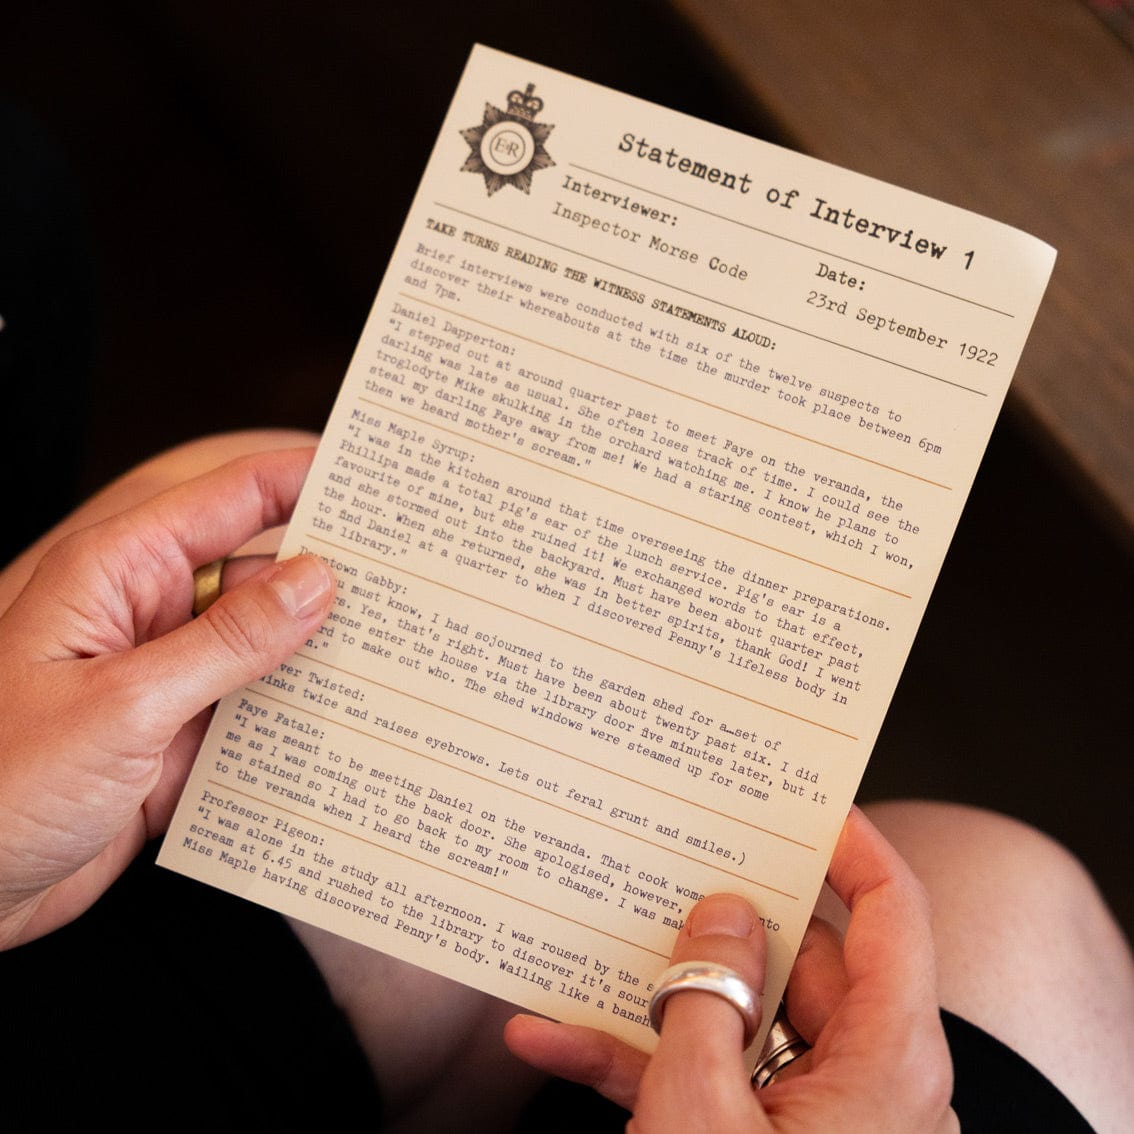 Statement of Interview 1
E R
Interviewer:
Inspector Morse Code
Date:
23rd September 1922
TAKE TURNS READING THE WITNESS STATEMENTS ALOUD:
Brief interviews were conducted with six of the twelve suspects to
discover their whereabouts at the time the murder took place between 6pm
and 7pm.
Daniel Dapperton:
"I stepped out at around quarter past to meet Faye on the veranda, the
darling was late as usual. She often loses track of time. I could see the
troglodyte Mike skulking in the orchard watching me. I know he plans to
steal my darling Faye away from me! We had a staring contest, which I won,
then we heard mother's scream."
Miss Maple Syrup:
"I was in the kitchen around that time overseeing the dinner preparations.
Phillipa made a total pig's ear of the lunch service. Pig's ear is a
favourite of mine, but she ruined it! We exchanged words to that effect,
and she stormed out into the backyard. Must have been about quarter past
the hour. When she returned, she was in better spirits, thank God! I went
to find Daniel at a quarter to when I discovered Penny's lifeless body in
the library."
town Gabby:
must know, I had sojourned to the garden shed for a…set of
Yes, that's right. Must have been about twenty past six. I did
enter the house via the library door five minutes later, but it
to make out who. The shed windows were steamed up for some
Twisted:
twice and raises eyebrows. Lets out feral grunt and smiles.)
Faye Fatale:
"I was meant to be meeting Daniel on the veranda. That cook
me as I was coming out the back door. She apologised, however,
was stained so I had to go back to my room to change. I was
to the veranda when I heard the scream!"
Professor Pigeon:
"I was alone in the study all afternoon. I was roused by the
scream at 6.45 and rushed to the library to discover it's
Miss Maple having discovered Penny's body. Wailing like a